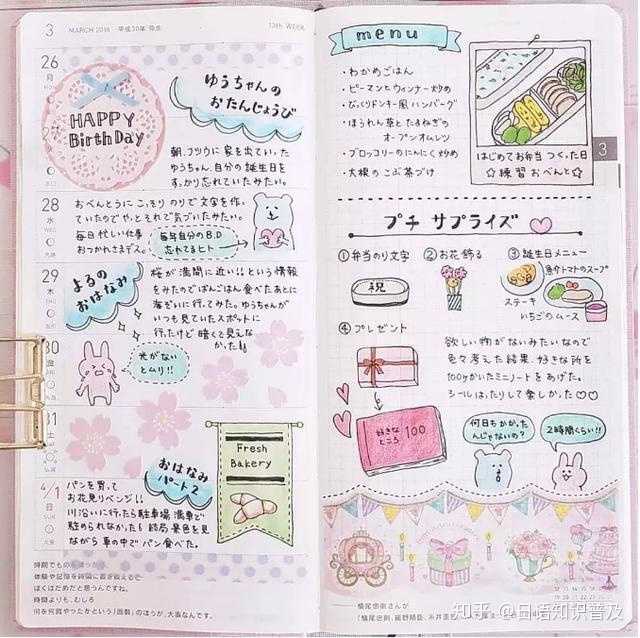 3 MARCH 2018 平成30年 弥生 13th WEEK
26
月
HAPPY
BirthDay
ゆうちゃんの
おたんじょうび
27
朝、フツウに家を出ていった
ゆうちゃん。自分の誕生日を
すっかり忘れていたみたい。
28
水
おべんとうに こっそり のりで文字を作っ
ていたので やっとそれで気づいたみたい。
毎日忙しい仕事
おつかれさまデス。
毎年自分のB.D
忘れてるヒト
29
木
よるの
おはなみ
桜が満開に近い!!という情報
をみたのでばんごはん食べたあとに
海ぞいに行ってみた。ゆうちゃんが
いつも見ていたスポットに
行ったけど 暗くて見えな
かった!!
30
金
光がない
とムリ!!
31
土
おはなみ
パート2
Fresh
Bakery
4/1
日
SUN
パンを買って
お花見リベンジ!!
川沿いに行ったら駐車場 満車で
駐められなかった!! 結局 景色を見
ながら 車の中で パン食べた。
時間でも
体験や記憶を時間に置き換えるで
ぼくはだめだと思うんですね。
時間よりも、むしろ
何を何回やったかという「回数」のほうが、大事なんです。
menu
・わかめごはん
・ピーマンとウィンナー炒め
・びっくりドンキー風 ハンバーグ
・ほうれん草と たまねぎの
オープンオムレツ
・ブロッコリーのにんにく炒め
・大根の こぶ茶づけ
はじめてお弁当 つくった日
☆練習 おべんと☆
3
プチ サプライズ
①弁当のり文字
祝
②お花 飾る
③誕生日メニュー
魚介トマトのスープ
ステーキ
いちごのムース
④プレゼント
欲しい物がないみたいなので
色々考えた結果、好きな所を
100コかいたミニノートをあげた。
シールはったりして楽しかった♡♡
好きな
ところ 100
何日もかかった
んじゃないの?
2時間くらい!!
横尾忠則さんが
知乎 @日语知识普及